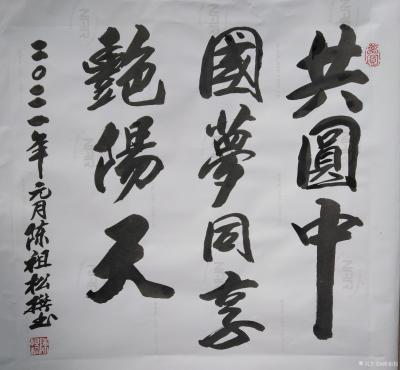 共圓中
國夢同享
艷陽天
二〇二一年元月陈祖松撰书